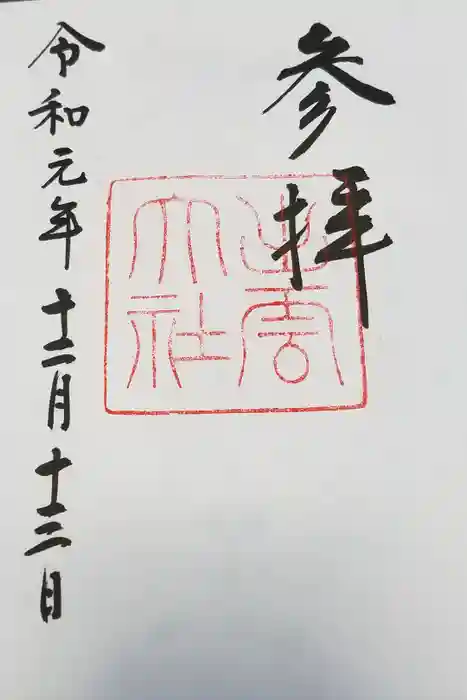 参拝
出雲
大社
令和元年十二月十三日